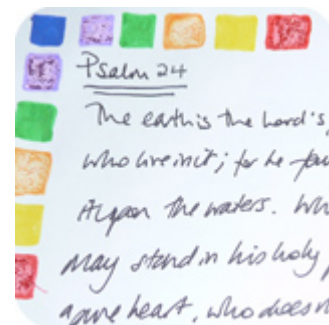 Psalm 24
The earth is the Lord's,
who live in it; for he
it upon the waters. Who
may stand in his holy
a pure heart, who does